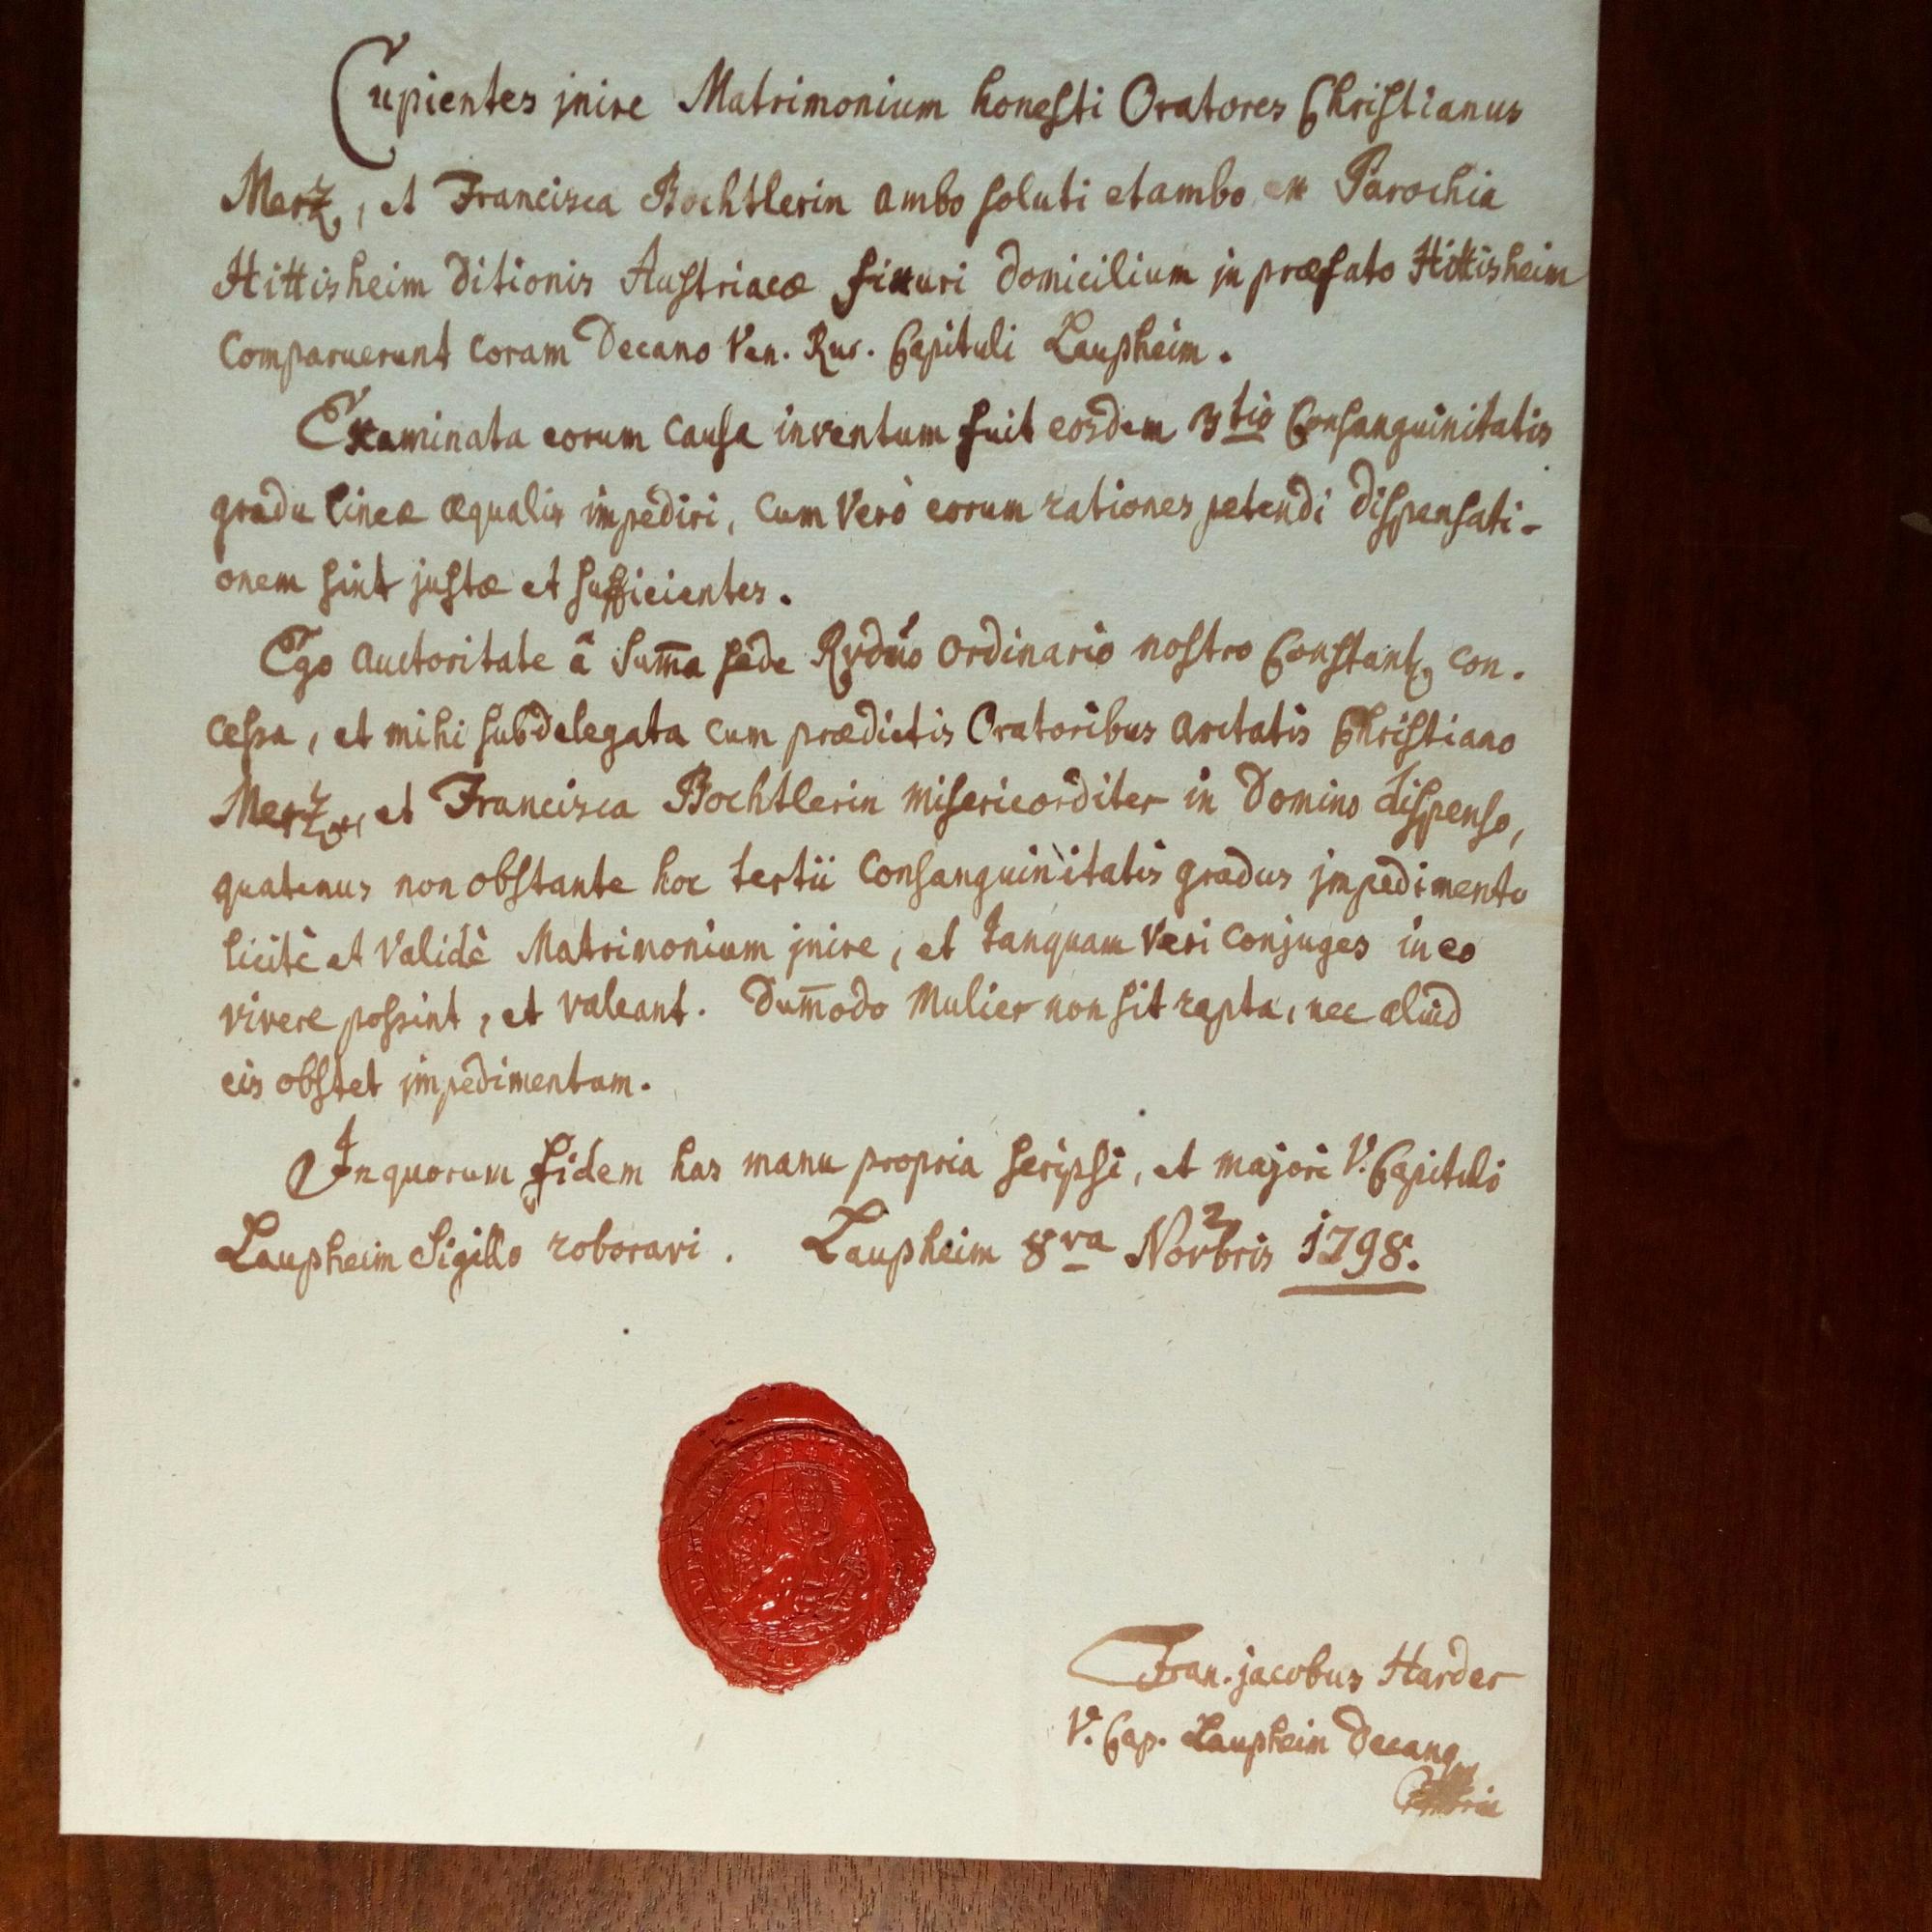 Cupientes jnire Matrimonium honesti Oratores Christianus
Merz, et Francisca Bochtlerin ambo soluti et ambo ex Parochia
Hittisheim ditionis Austriacæ fixuri domicilium jn præfato Hittisheim
Comparuerunt coram Decano Ven. Rur. Capituli Laupheim.
Examinata eorum causa inventum fuit eosdem 3tio Consanguinitatis
gradu lineæ æqualis impediri, cum verò eorum rationes petendi dispensati-
onem sint justæ et sufficientes.
Ego auctoritate â summa sede Rvdmo ordinario nostro Constant. con-
cessa, et mihi subdelegata cum prædictis Oratoribus arctatis Christiano
Merz, et Francisca Bochtlerin misericorditer in Domino dispenso,
quatenus non obstante hoc tertii Consanguinitatis gradus jmpedimento
licitè et validè Matrimonium jnire, et tanquam veri conjuges in eo
vivere possint, et valeant. Dum̄odo Mulier non sit rapta, nec aliud
eis obstet jmpedimentum.
In quorum fidem has manu propria scripsi, et majori V. Capituli
Laupheim Sigillo roboravi. Laupheim 8va Novbris 1798.
Fran. jacobus Harder
V. Cap. Laupheim Decanq